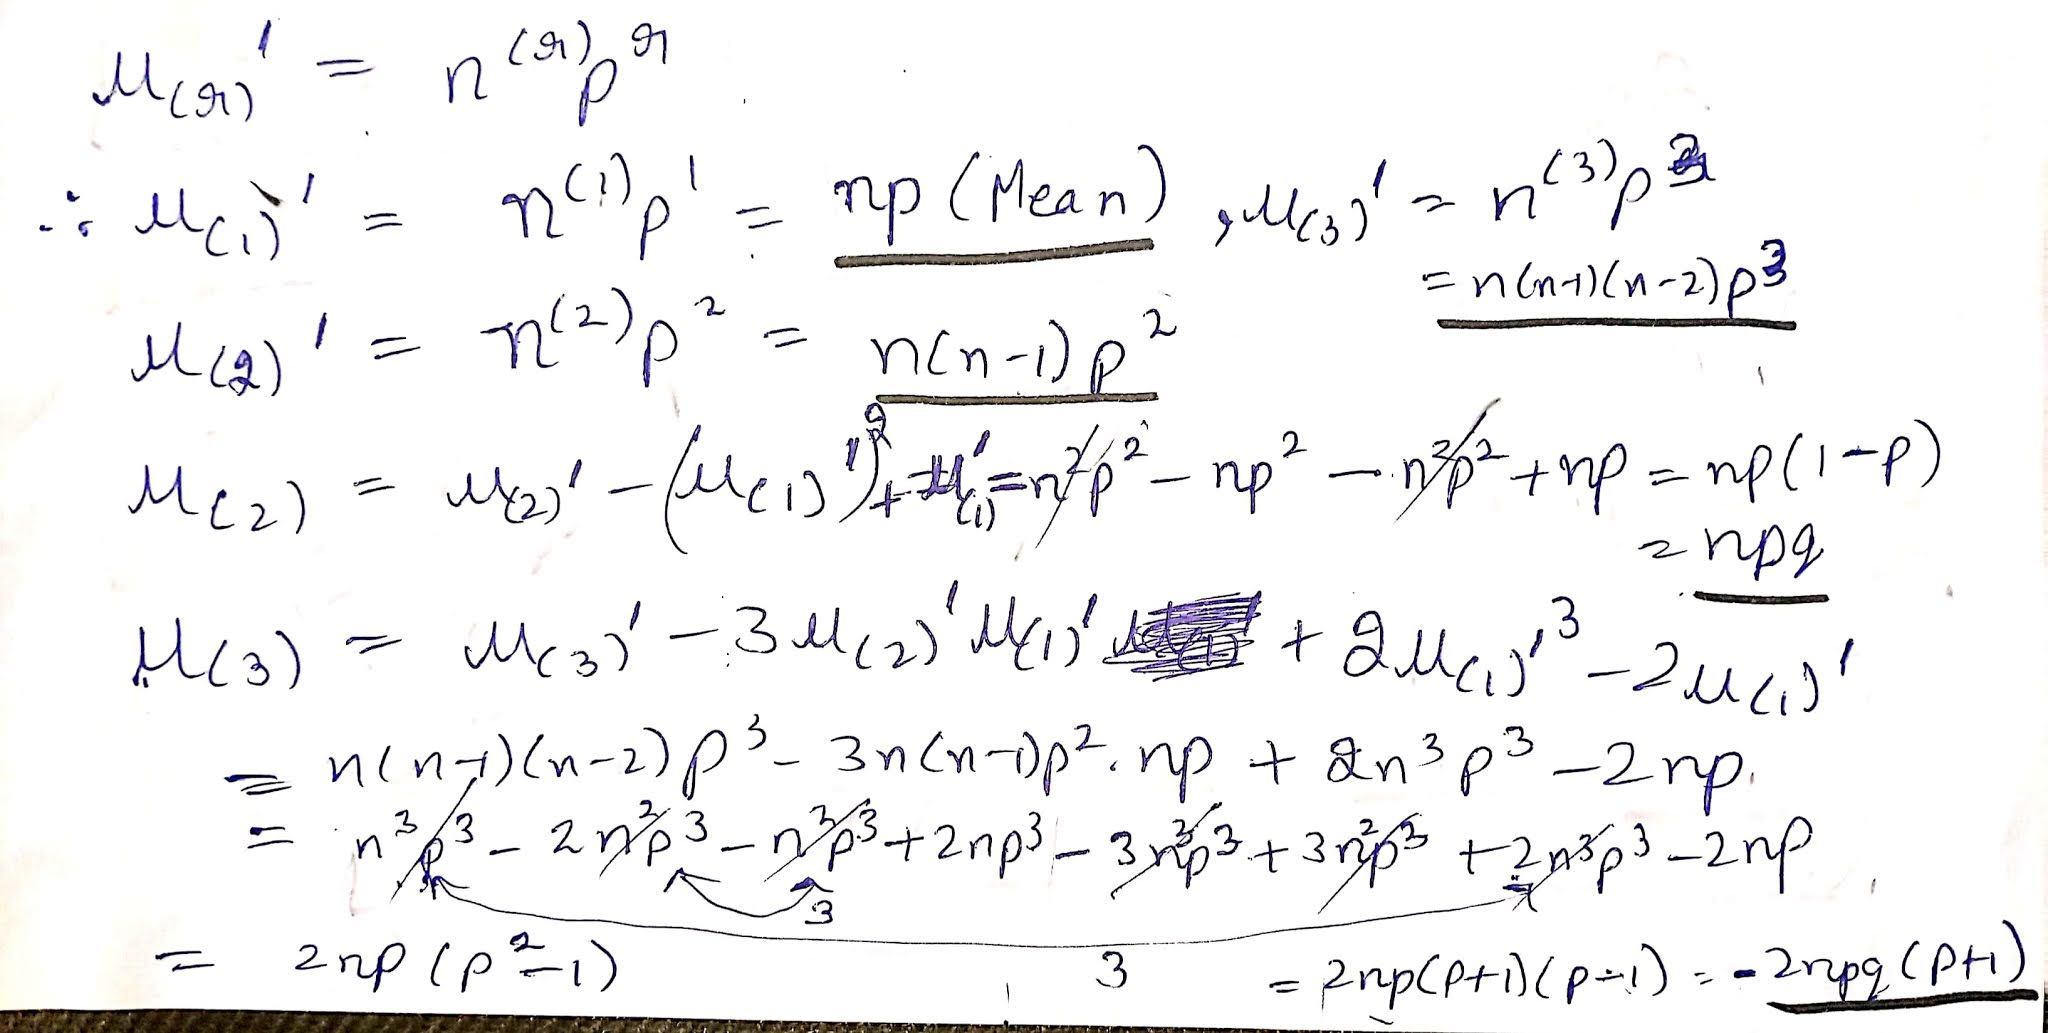 μ(r)' = n^(r) p^r
∴ μ(1)' = n^(1) p^1 = np (Mean) , μ(3)' = n^(3) p^3
= n(n-1)(n-2)p^3
μ(2)' = n^(2) p^2 = n(n-1)p^2
μ(2) = μ(2)' - (μ(1)')^2 + μ(1)' = n^2p^2 - np^2 - n^2p^2 + np = np(1-p)
= npq
μ(3) = μ(3)' - 3μ(2)'μ(1)' + 2μ(1)'^3 - 2μ(1)'
= n(n-1)(n-2)p^3 - 3n(n-1)p^2.np + 2n^3p^3 - 2np.
= n^3p^3 - 2n^2p^3 - n^2p^3 + 2np^3 - 3n^3p^3 + 3n^2p^3 + 2n^3p^3 - 2np
3
= 2np(p^2-1) 3 = 2np(p+1)(p-1) = -2npq(p+1)